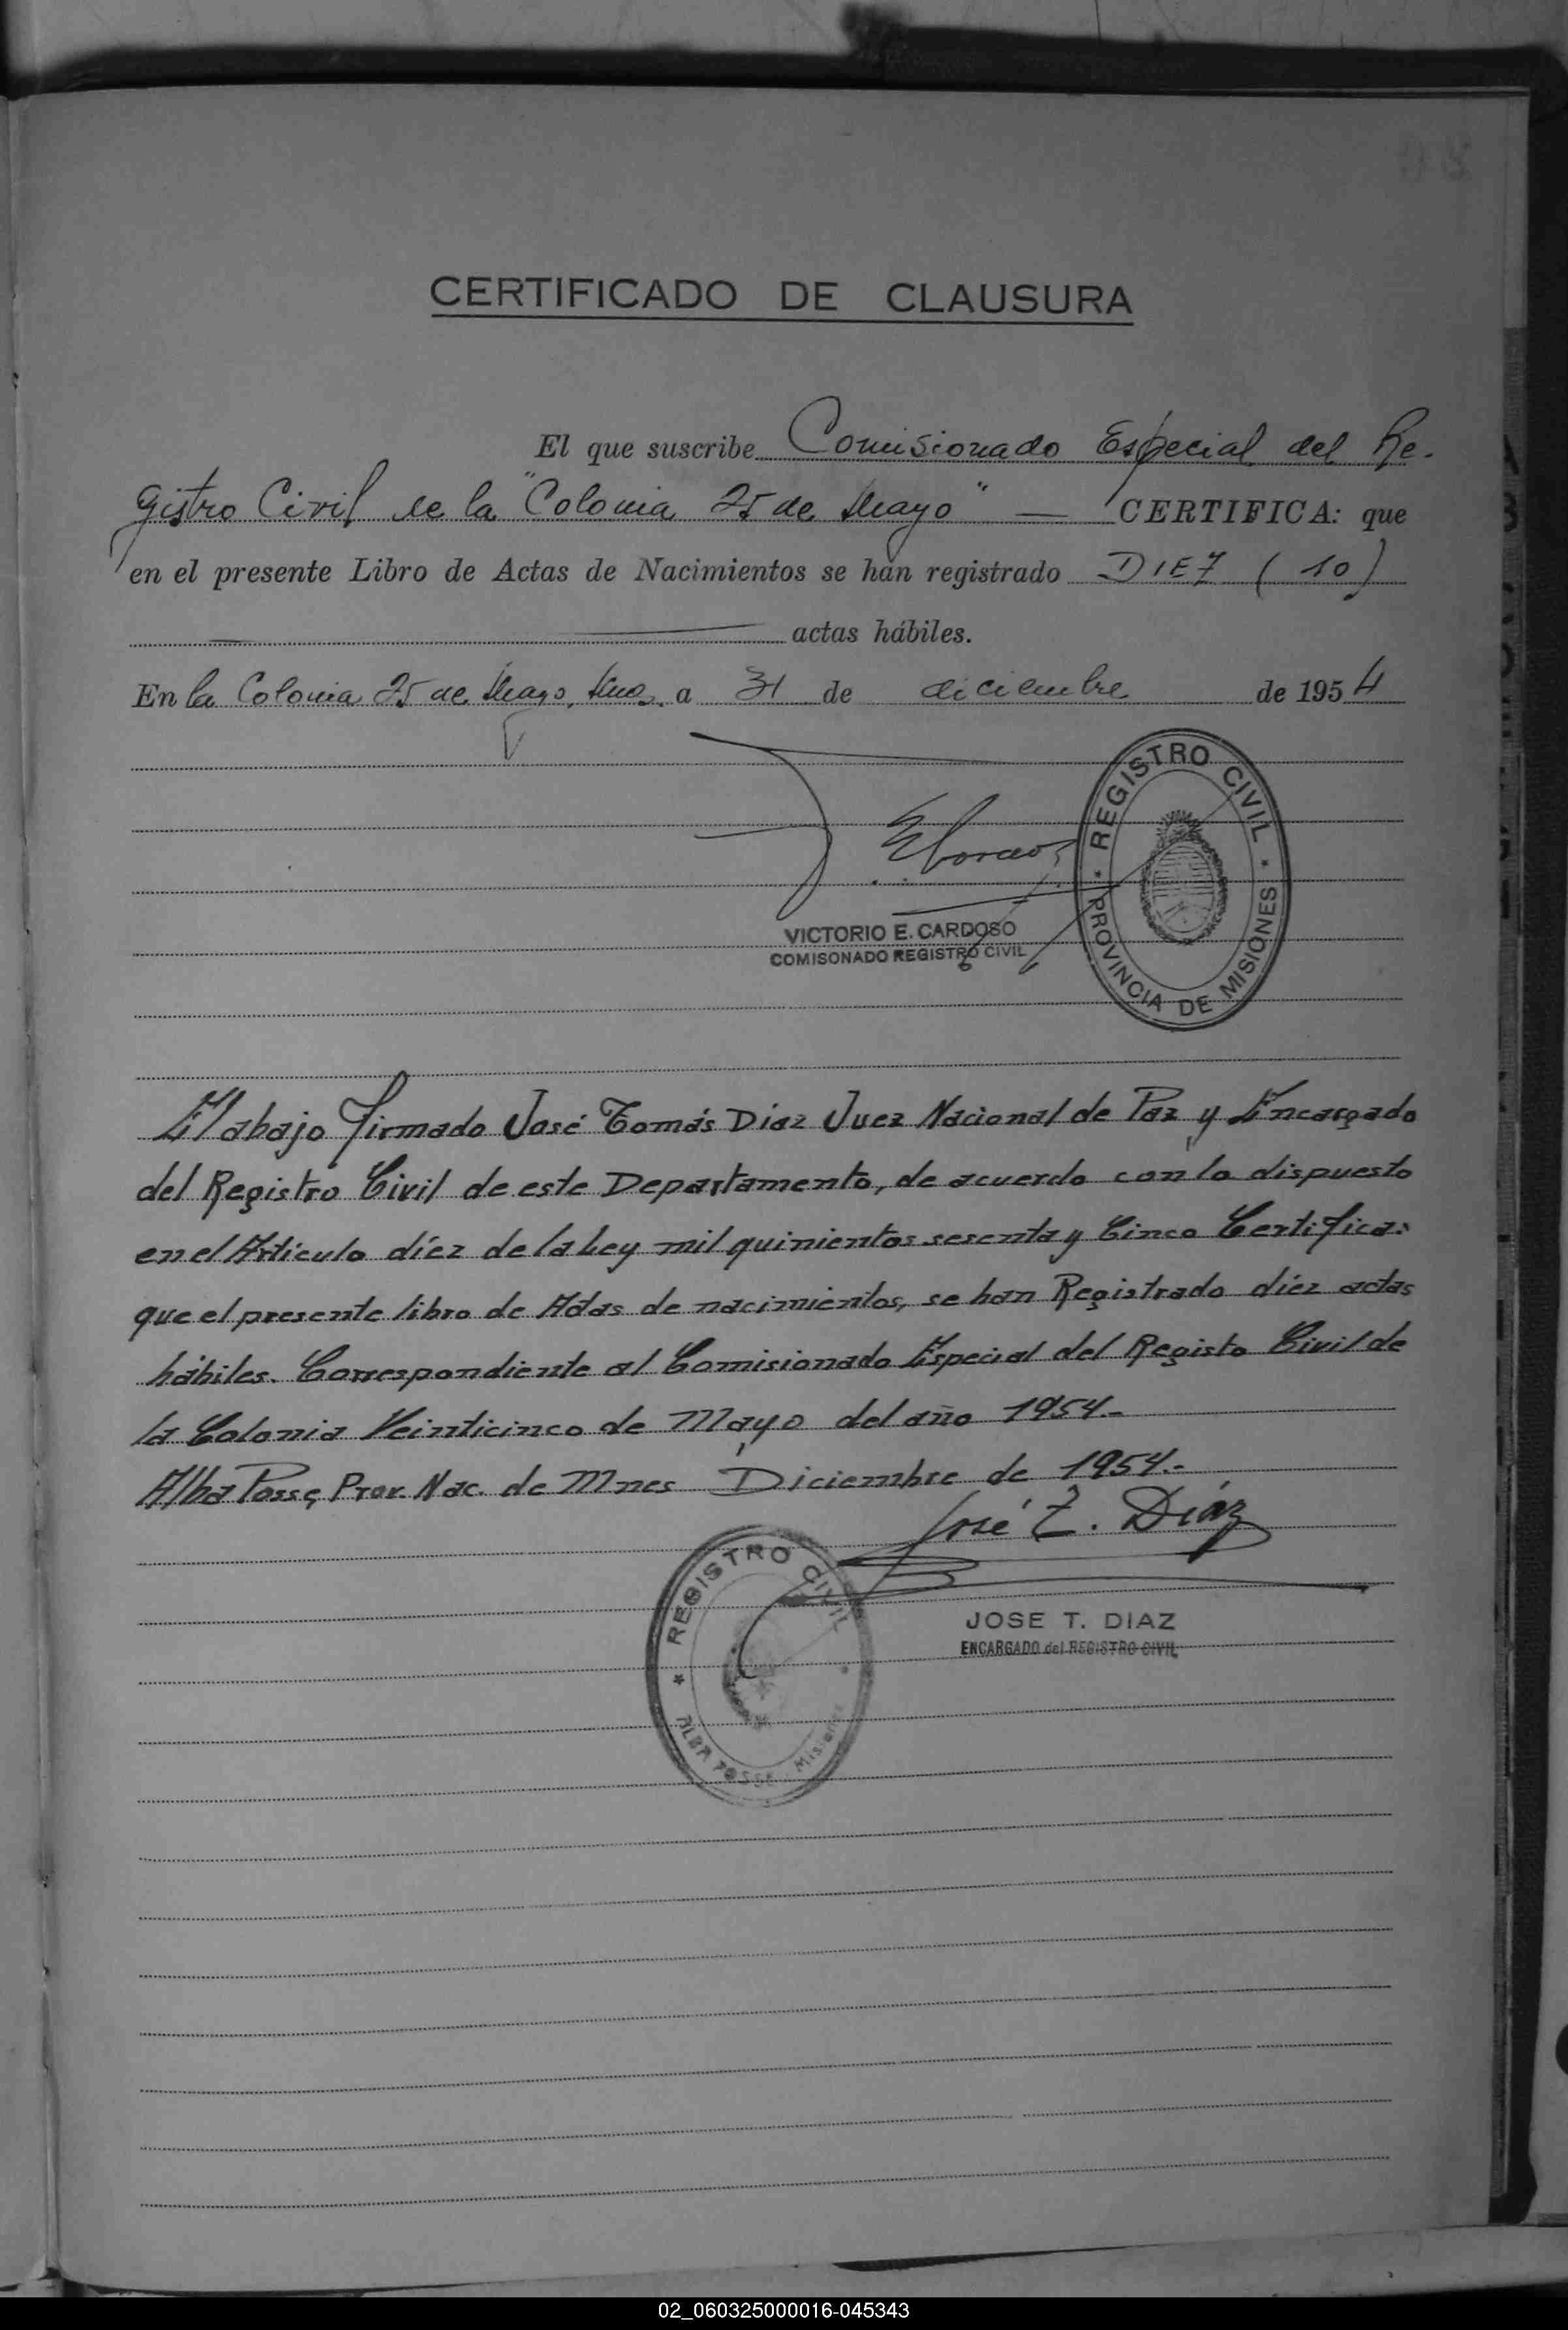 CERTIFICADO DE CLAUSURA
El que suscribe Comisionado Especial del Re-
gistro Civil de la "Colonia 25 de Mayo" — CERTIFICA: que
en el presente Libro de Actas de Nacimientos se han registrado DIEZ (10)
actas hábiles.
En la Colonia 25 de Mayo, Mnes. a 31 de diciembre de 1954
REGISTRO CIVIL
PROVINCIA DE MISIONES
VICTORIO E. CARDOSO
COMISONADO REGISTRO CIVIL
El abajo firmado José Tomás Diaz Juez Nacional de Paz y Encargado
del Registro Civil de este Departamento, de acuerdo con lo dispuesto
en el Artículo díez de la Ley mil quinientos sesenta y Cinco Certifica:
que el presente libro de Actas de nacimientos, se han Registrado díez actas
hábiles. Correspondiente al Comisionado Especial del Registo Civil de
la Colonia Veinticinco de Mayo del año 1954.-
Alba Posse, Prov. Nac. de Mnes Diciembre de 1954.-
José T. Díaz
REGISTRO CIVIL
ALBA POSSE Misiones
JOSE T. DIAZ
ENCARGADO del REGISTRO CIVIL
02_060325000016-045343